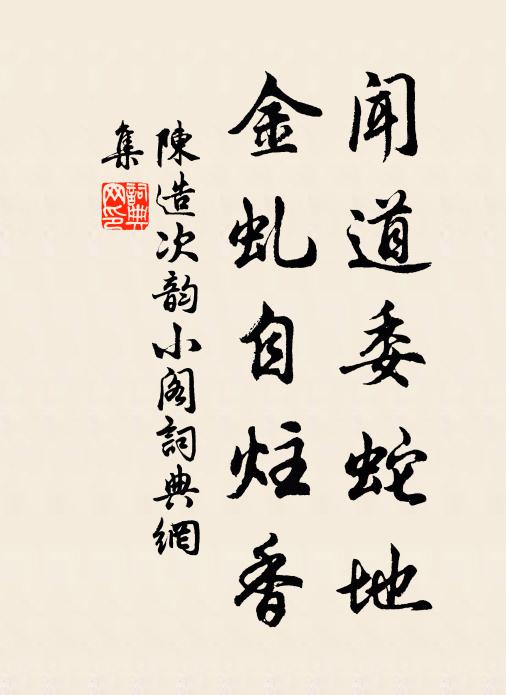 闻道委蛇地
金虬自炷香
陳造次韵小阁詞典網
集
詞典网印